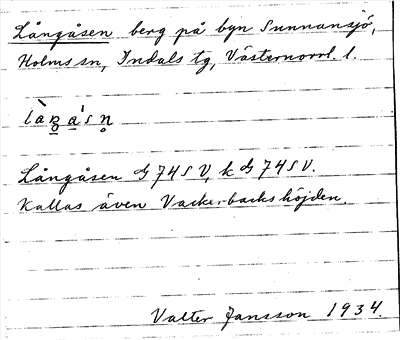 Långåsen berg på byn Sunnansjö,
Holms sn, Indals tg, Västernorrl. l.
Långåsen dg 74 S V, k dg 74 S V.
Kallas även Vackerbackshöjden.
Valter Jansson 1934.